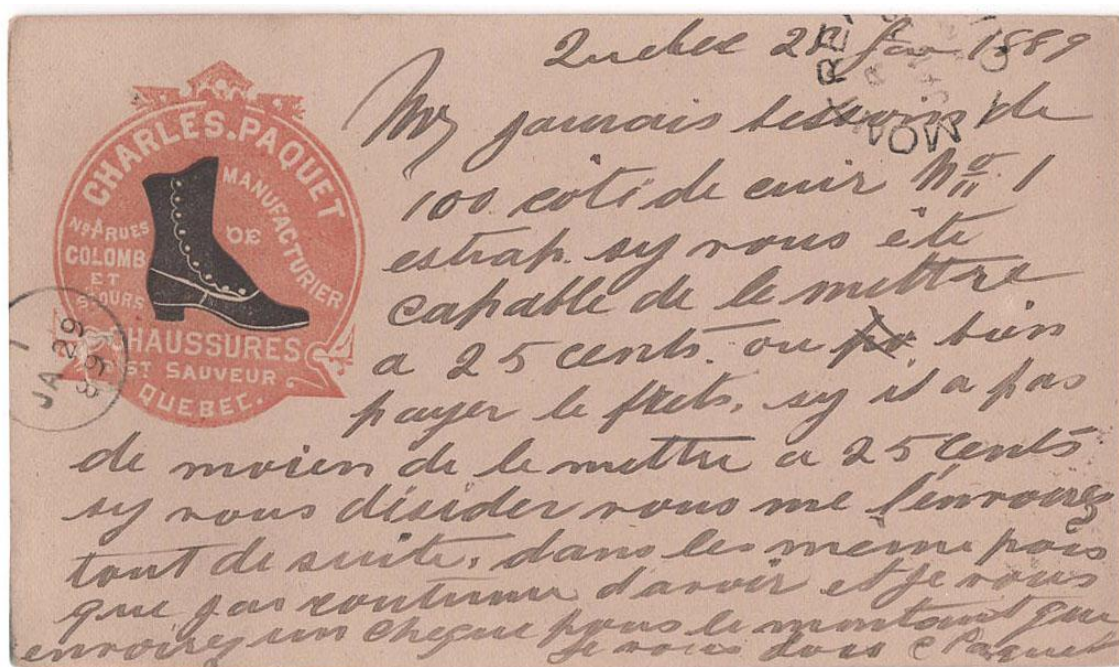 Quebec 28 Jan 1889
CHARLES. PAQUET
MANUFACTURIER
DE
CHAUSSURES
Nos A RUES
COLOMB
ET
ST OURS
ST SAUVEUR
QUEBEC.
JA 29
89
MON
Mr jaurais bessoins de
100 coté de cuir No 1
estrap. sy vous ète
capable de le mettre
a 25 cents. ou bien
payer le frets, sy il a pas
de moien de le mettre a 25 cents
sy vous désider vous me l'envoires
tout de suite, dans les meme pois
que jas contumme davoir et je vous
envoires un cheque pour le montant que
je vous dois C Paquet